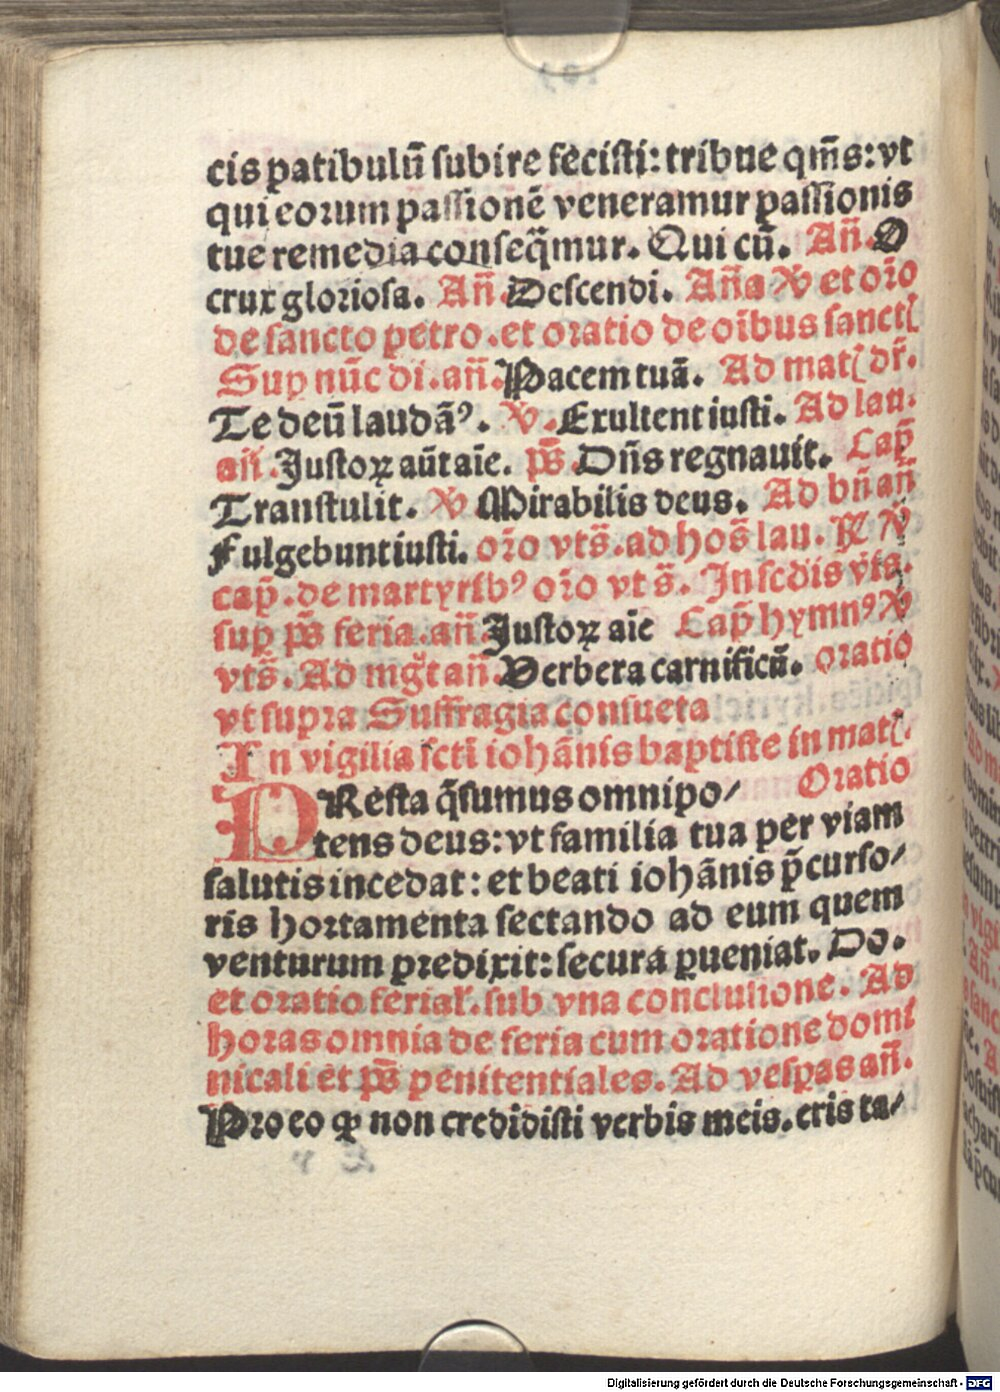 cis patibulū ſubire feciſti: tribue qm̄s: vt
qui eorum paſſionē veneramur paſſionis
tue remedia conſeq̄mur. Qui cū. Añ. O
crux glorioſa. Añ. Deſcendi. Aña ℣ et oꝛ̄o
de ſancto petro. et oꝛatio de oībus ſancti
Suꝑ nūc di. añ. Pacem tuā. Ad mat dr̄.
Te deū laudāꝰ. ℣. Exultent iuſti. Ad lau.
añ. Juſtoꝝ aūt aīe. ps̄. Dn̄s regnauit. Cap̄
Tranſtulit. ℣ Mirabilis deus. Ad bn̄ añ
Fulgebunt iuſti. oꝛ̄o vts̄. ad hos̄ lau. ℟ ℣
cap̄. de martyribꝰ oꝛ̄o vt s̄. In ſcdis
ſuꝑ ps̄ feria. añ. Juſtoꝝ aīe Cap̄ hymnꝰ ℣
vts̄. Ad mg̅t añ. Verbera carnificū. oꝛatio
vt ſupꝛa Suffragia conſueta
In vigilia ſcti iohānis baptiſte in mat.
PReſta q̄ſumus omnipo/ Oꝛatio
tens deus: vt familia tua per viam
ſalutis incedat: et beati iohānis p̄curſo/
ris hoꝛtamenta ſectando ad eum quem
venturum pꝛedixit: ſecura ꝑueniat. Do.
et oꝛatio ferial̄. ſub vna concluſione. Ad
hoꝛas omnia de feria cum oꝛatione domi
nicali et ps̄ penitentiales. Ad veſpas añ.
Pꝛo eo ꝙ non credidiſti verbis meis. eris ta/
Digitalisierung gefördert durch die Deutsche Forschungsgemeinschaft - DFG